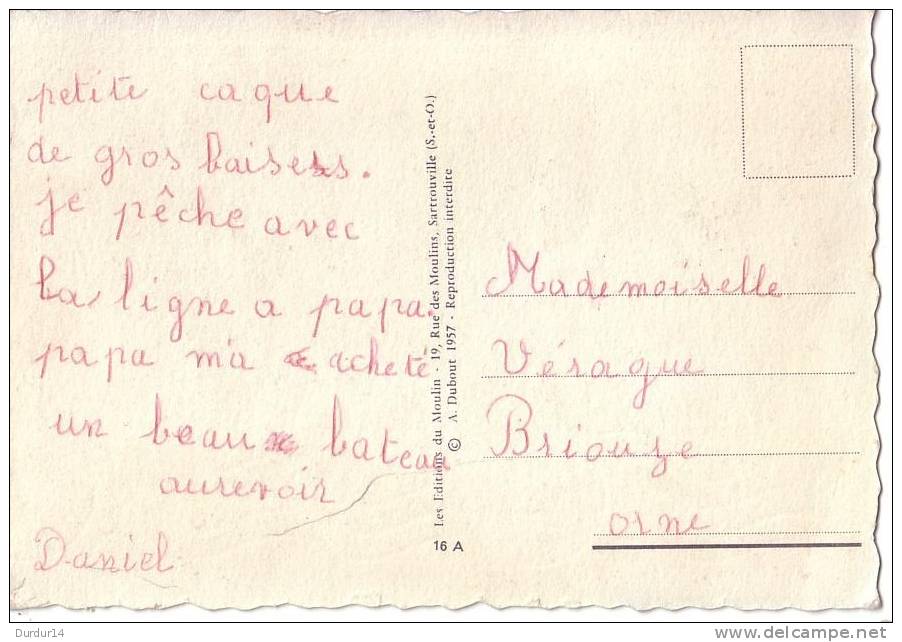 petite caque
de gros baisers.
je pêche avec
la ligne a papa.
papa m'a acheté
un beau bateau
aurevoir
Daniel
Les Editions du Moulin - 19, Rue des Moulins, Sartrouville (S.-et-O.)
© A. Dubout 1957 - Reproduction interdite
16 A
Mademoiselle
Véraque
Briouze
orne
Durdur14
www.delcampe.net